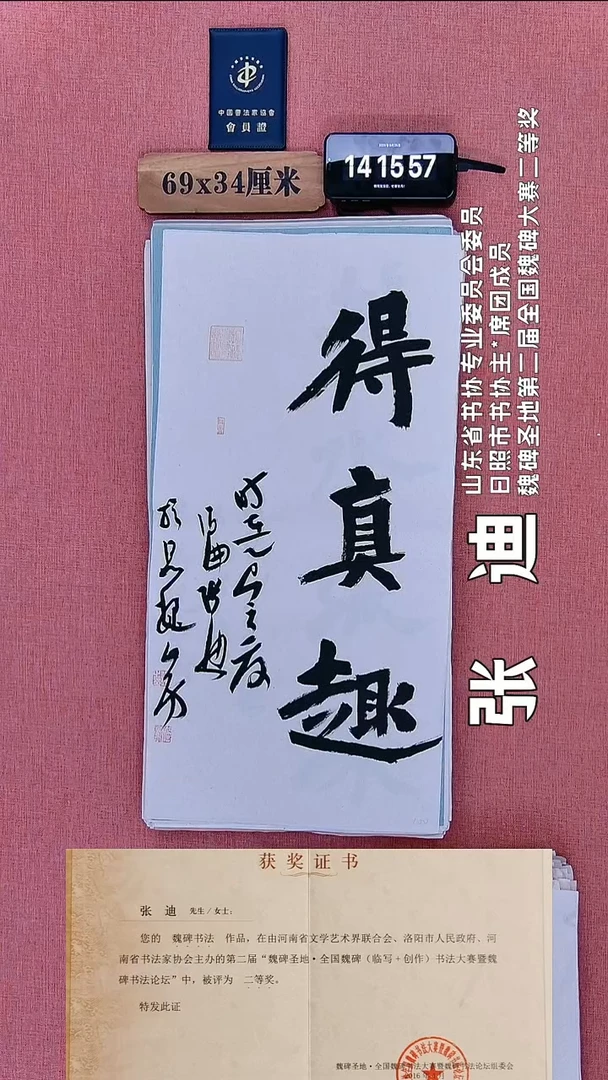 中国书法家协会
會員證
69x34厘米
14 15 57
得真趣
山东省书协专业委员会委员
日照市书协主*席团成员
魏碑圣地第二届全国魏碑大赛二等奖
张 迪
获奖证书
张 迪 先生/女士：
您的 魏碑书法 作品，在由河南省文学艺术界联合会、洛阳市人民政府、河
南省书法家协会主办的第二届“魏碑圣地·全国魏碑（临写+创作）书法大赛暨魏
碑书法论坛”中，被评为 二等奖。
特发此证
魏碑圣地·全国魏碑书法大赛暨魏碑书法论坛组委会